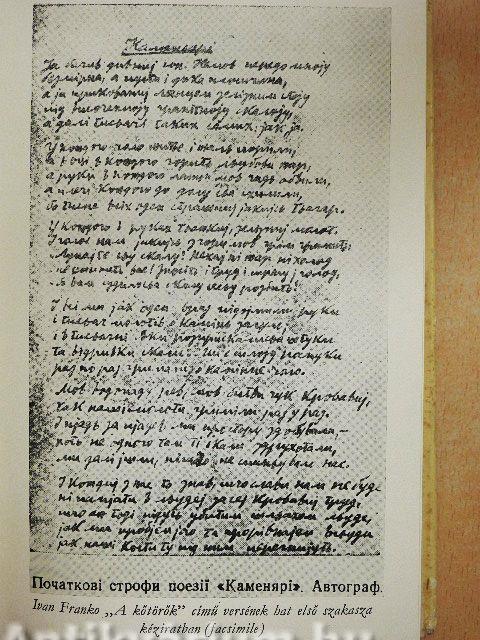 Каменярі
Я бачив дивний сон. Немов передо мною
безмірна, а пуста і дика площина,
а я прикований ланцем залізним стою
під височенною гранітною скалою,
а далі тисячі таких самих, як я.
У кождого чоло життє і жаль порили,
в кождого горить любови жар,
а руки в кождого ланци мов гадь обвили,
а плечі кождого до долу ся схилили,
бо всіх один страшний якийсь тягар.
У кождого в руках тяжкий, зелізний молот.
І голос нам якийсь з гори мов грім гримить:
"Лупайте сю скалу! Нехай ні жар ні холод
не спинить вас! Зносіть і труд і спрагу, голод,
скалу сесю розбить!"
І всі ми як один підоймили руки
і тисяч молотів о камінь загуло,
і в тисячні боки розприскалися штуки
та відривки скали.
раз по раз
Мов водопаду рев, мов битви гук кровавий,
так наші молоти гриміли раз у раз.
І пядь за пядею ми простору здобували, –
хоть не одного там скали покалічили,
ми далі йшли, ніщо не спинювало нас.
І кождий з нас то знав, що слави нам не буде
ні памяти в людей за сей кровавий труд,
що аж тоді підуть убитим шляхом люде,
як ми пробємо го та
як наші кости ту під ним
Початкові строфи поезії «Каменярі». Автограф.
Ivan Franko „A kőtörők” című versének hat első szakasza
kéziratban (facsimile)